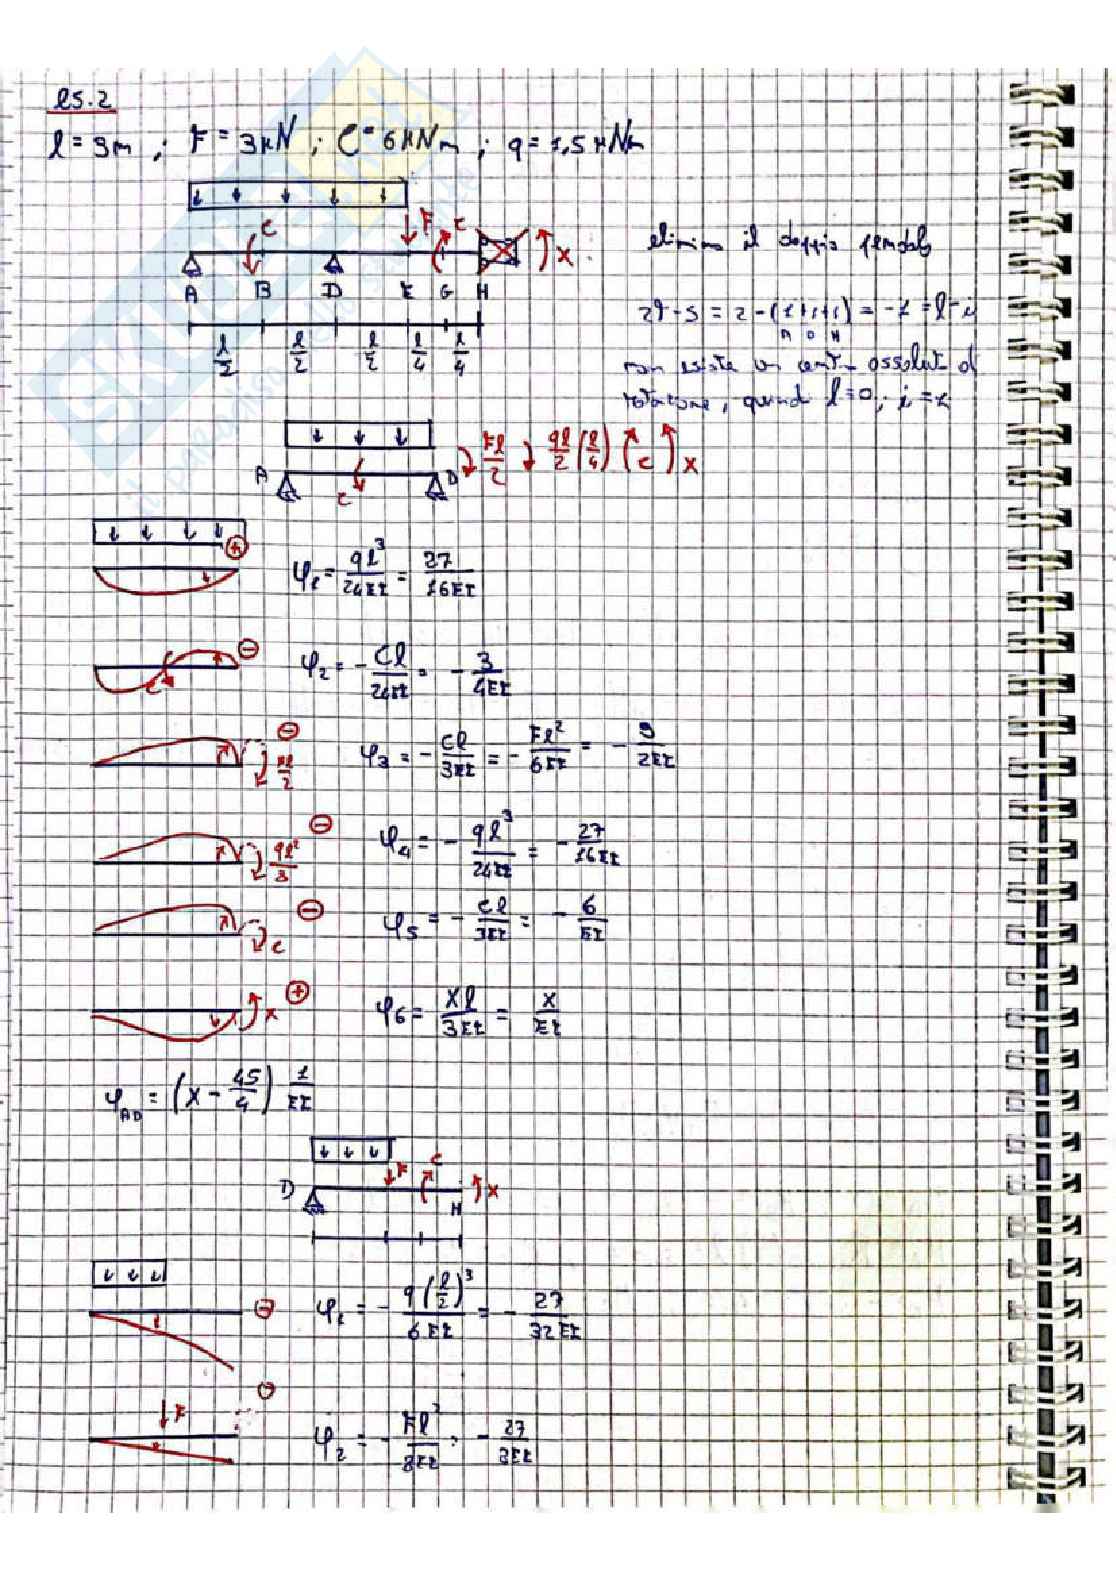 es.2
l = 3m ; F = 3kN ; C = 6kNm ; q = 1,5 kNm
F C
C X
elimino il doppio pendolo
A B D E G H
l/2 l/2 l/2 l/4 l/4
2t - s = 2 - (1+1+1) = -1 = l - i
A D H
non esiste un centro assoluto di
rotazione, quindi l=0; i=1
A D C Fl/2 ql/2 (l/4) C X
φ1 = ql³/24EI = 27/16EI
φ2 = - Cl/24EI = - 3/4EI
φ3 = - Cl/3EI = - Fl²/6EI = - 9/2EI
Fl/2
φ4 = - ql³/24EI = - 27/16EI
ql²/8
φ5 = - Cl/3EI = - 6/EI
C
φ6 = Xl/3EI = X/EI
X
φAD = (X - 45/4) 1/EI
D F C H X
φ1 = - q(l/2)³/6EI = - 27/32EI
F
φ2 = - Fl²/8EI = - 27/8EI